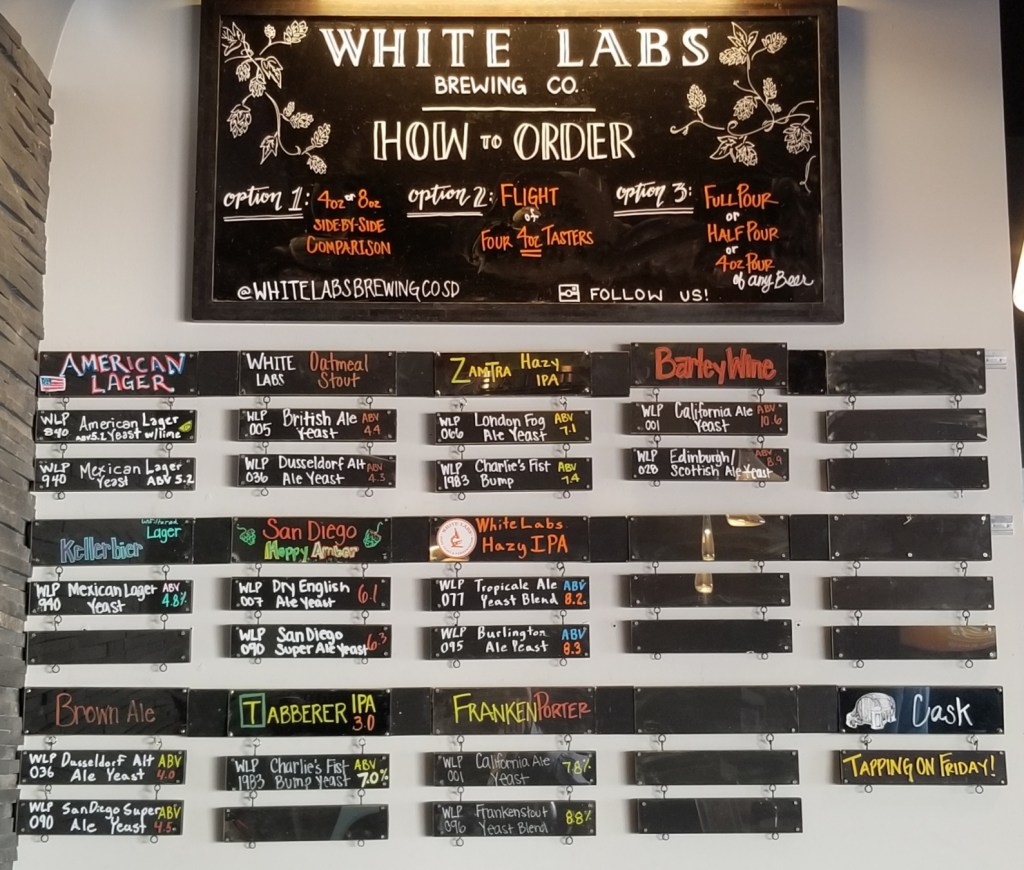 WHITE LABS
BREWING CO.
HOW TO ORDER
option 1: 4oz or 8oz
SIDE-BY-SIDE
COMPARISON
option 2: FLIGHT
of
FOUR 4oz TASTERS
option 3: FULL POUR
or
HALF POUR
or
4oz POUR
of any Beer
@WHITELABSBREWINGCOSD
FOLLOW US!
AMERICAN
LAGER
WLP American Lager
840 ABV 5.2 Yeast w/lime
WLP Mexican Lager
940 Yeast ABV 5.2
WHITE Oatmeal
LABS Stout
WLP British Ale ABV
005 Yeast 4.4
WLP Dusseldorf Alt ABV
036 Ale Yeast 4.3
ZAMTRA Hazy
IPA
WLP London Fog ABV
066 Ale Yeast 7.1
WLP Charlie's Fist ABV
1983 Bump 7.4
Barley Wine
WLP California Ale ABV
001 Yeast 10.6
WLP Edinburgh/ ABV
028 Scottish Ale Yeast 8.9
unfiltered
Lager
Kellerbier
WLP Mexican Lager ABV
940 Yeast 4.8%
San Diego
Hoppy Amber
WLP Dry English 6.1
007 Ale Yeast
WLP San Diego 6.3
090 Super Ale Yeast
WHITE LABS
White Labs
Hazy IPA
WLP Tropicale Ale ABV
077 Yeast Blend 8.2
WLP Burlington ABV
095 Ale Yeast 8.3
Brown Ale
WLP Dusseldorf Alt ABV
036 Ale Yeast 4.0
WLP San Diego Super ABV
090 Ale Yeast 4.5
TABBERER IPA
3.0
WLP Charlie's Fist ABV
1983 Bump Yeast 7.0%
FRANKENPORTER
WLP California Ale 7.8%
001 Yeast
WLP Frankenstout 8.8%
096 Yeast Blend
Cask
TAPPING ON FRIDAY!